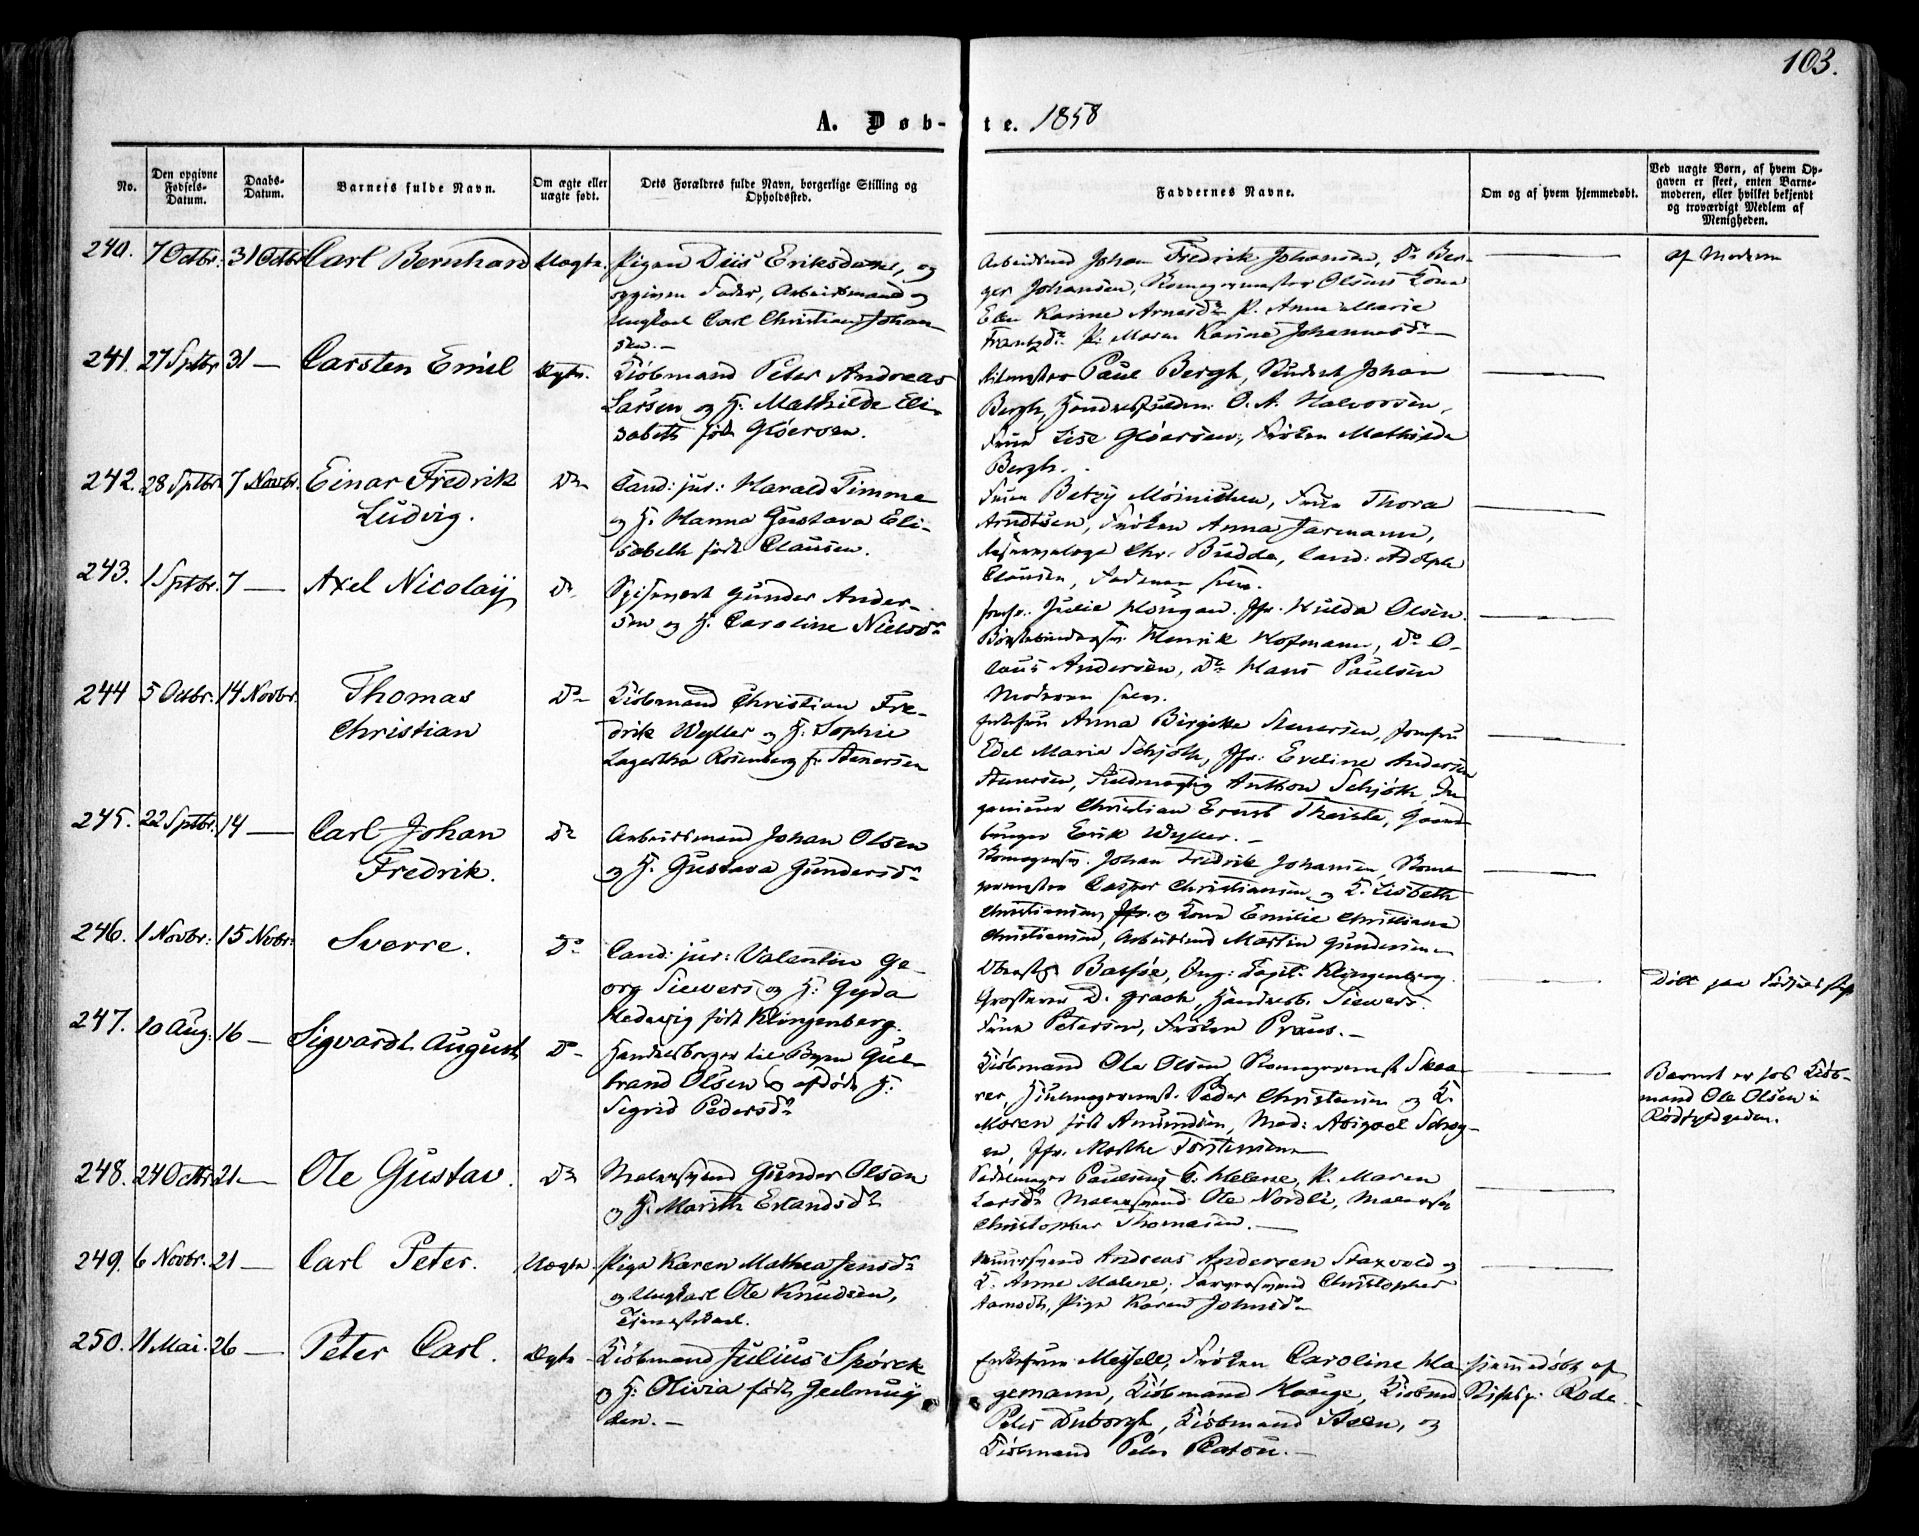 103.
A. Døb-te. 1858
No.
Den opgivne Fødsels-Datum.
Daabs-Datum.
Barnets fulde Navn.
Om ægte eller uægte født.
Dets Forældres fulde Navn, borgerlige Stilling og Opholdssted.
Faddernes Navne.
Om og af hvem hjemmedøbt.
Ved uægte Børn, af hvem Op-
gaven er skeet, enten Barne-
moderen, eller hvilket bekjendt
og troværdigt Medlem af
Menigheden.
240. 7 Octbr. 31 Octbr Carl Bernhard Uægte.
Pigen Eriksdatter, og
opgiven Fader, Arbeidsmand og
Ungkarl Carl Christian Johan-
sen.
Arbeidsmd Johan Fredrik Johansen, Do Ber-
ger Johansen, Skomagermester Olsens Kone
Ellen Karine Arnesdr P. Anne Marie
Frantzdr P. Maren Karine Johannesdr
af Moderen
241. 27 Septbr 31 — Carsten Emil Ægte.
Kiøbmand Peter Andreas
Larsen og H. Mathilde Eli-
sabeth født Gløersen.
Paul Bergh, Student Johan
Bergh, O. A. Halvorsen,
Frue Lise Gløersen, Frøken Mathilde
Bergh.
242. 28 Septbr. 7 Novbr. Einar Fredrik
Ludvig. Do
Cand: jur: Harald Timme
og H. Hanna Gustava Eli-
sabeth født Clausen.
Frue Betzy Møinichen, Frue Thora
Arndtsen, Frøken Anna Jarmann,
Chr. Budde, Cand: Adolph
Clausen, Faderen selv.
243. 1 Septbr. 7 — Axel Nicolaij Do
Spisevært Gunder Ander-
sen og H. Caroline Nielsdr
Jomfr. Julie Hougan. Jfr. Hulda Olsen.
Henrik Hofmann, Do O-
laus Andersen, Do Hans Paulsen
Moderen selv.
244 5 Octbr. 14 Novbr. Thomas
Christian Do
Kiøbmand Christian Fre-
drik Wyller og H. Sophie
Lagertha Rosenberg f. Stenersen
Enkefru Anna Birgitte Stenersen, Jomfru
Edel Marie Schjøth, Jfr: Eveline Andersen
Stenersen, Fuldmægtig Anthon Schjøth, In-
genieur Christian Ernst Theiste, Gaard-
bruger Erik Wyller.
245. 22 Septbr. 14 — Carl Johan
Fredrik. Do
Arbeidsmand Johan Olsen
og H. Gustava Gundersdr
Skomagersv. Johan Fredrik Johansen, Skoma-
germester Casper Christiansen og K. Lisbeth
Christiansen, Jfr. og Kone Emilie Christiane
Christiansen, Arbeidsmd Martin Gundersen
246. 1 Novbr: 15 Novbr: Sverre. Do
Cand: jur: Valentin Ge-
org Siewers og H: Gyda
Hedevig født Klingenberg.
Batføe, Ing: Capt: Klingenberg.
Grosserer D. Graah, Handelsb. Siewers.
Frue Petersen, Frøken Præus.
Døbt paa
247. 10 Aug: 16 — Sigvardt August Do
Handelsborger til Byen Gul-
brand Olsen og afdøde H:
Sigrid Pedersdr
Kiøbmand Ole Olsen, Skomagermest Skaa-
rer, Hjulmagermest. Peder Christensen og K.
Maren født Amundsen, Mad: Abigael
en, Jfr. Marthe Torstensen
Barnet er hos Kiøb-
mand Ole Olsen i
Rødfyldgaden.
248. 24 Octbr 21 — Ole Gustav. Do
Malersvend Gunder Olsen
og H. Marith Erlandsdr
Sadelmager Paulsens E. Helene, P. Maren
Larsdr Malersvend Ole Nordli, Malersv.
Christopher Thomesen.
249. 6 Novbr. 21 — Carl Peter. Uægte.
Pige Karen Mathea Jensdr
og Ungkarl Ole Knudsen,
Tjenestekarl.
Muursvend Andreas Andersen Staxvold og
K. Anne Malene; Farversvend Christopher
Aamodt, Pige Karen Johnsdr
250. 11 Mai. 26 — Peter Carl. Ægte
Kiøbmand Julius Spørck
og H. Olivia født Geelmuy-
den.
Enkefrue Meisell, Frøken Caroline Ha-
gemann, Kiøbmand Hauge, Kiøbmd
Peter Duborgh, Kiøbmand Steen, og
Kiøbmand Peter Platou.
hjemmedøbt af
Rode.